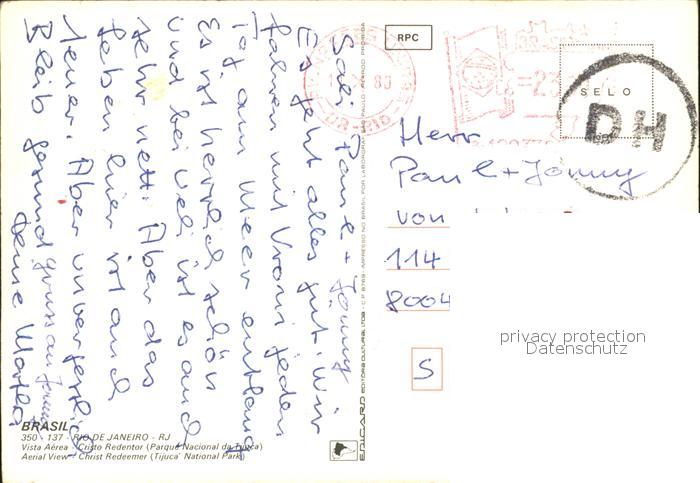 Sali Paul + Jönny
Es geht alles gut. Wir
fahren mit Vroni jeden
Tag am Meer entlang
Es ist herrlich schön
und bei Veli ist es auch
sehr nett. Aber das
Leben hier ist auch
teuer. Aber unvergesslich
Bleib gesund
Deine
BRASIL
350 - 137 - RIO DE JANEIRO - RJ
Vista Aérea - Cristo Redentor (Parque Nacional da Tijuca)
Aerial View - Christ Redeemer (Tijuca' National Park)
EDICARD EDITORA CULTURAL LTDA.
RPC
SELO
DH
Herr
Paul + Jönny
von
114
8004
S
privacy protection
Datenschutz